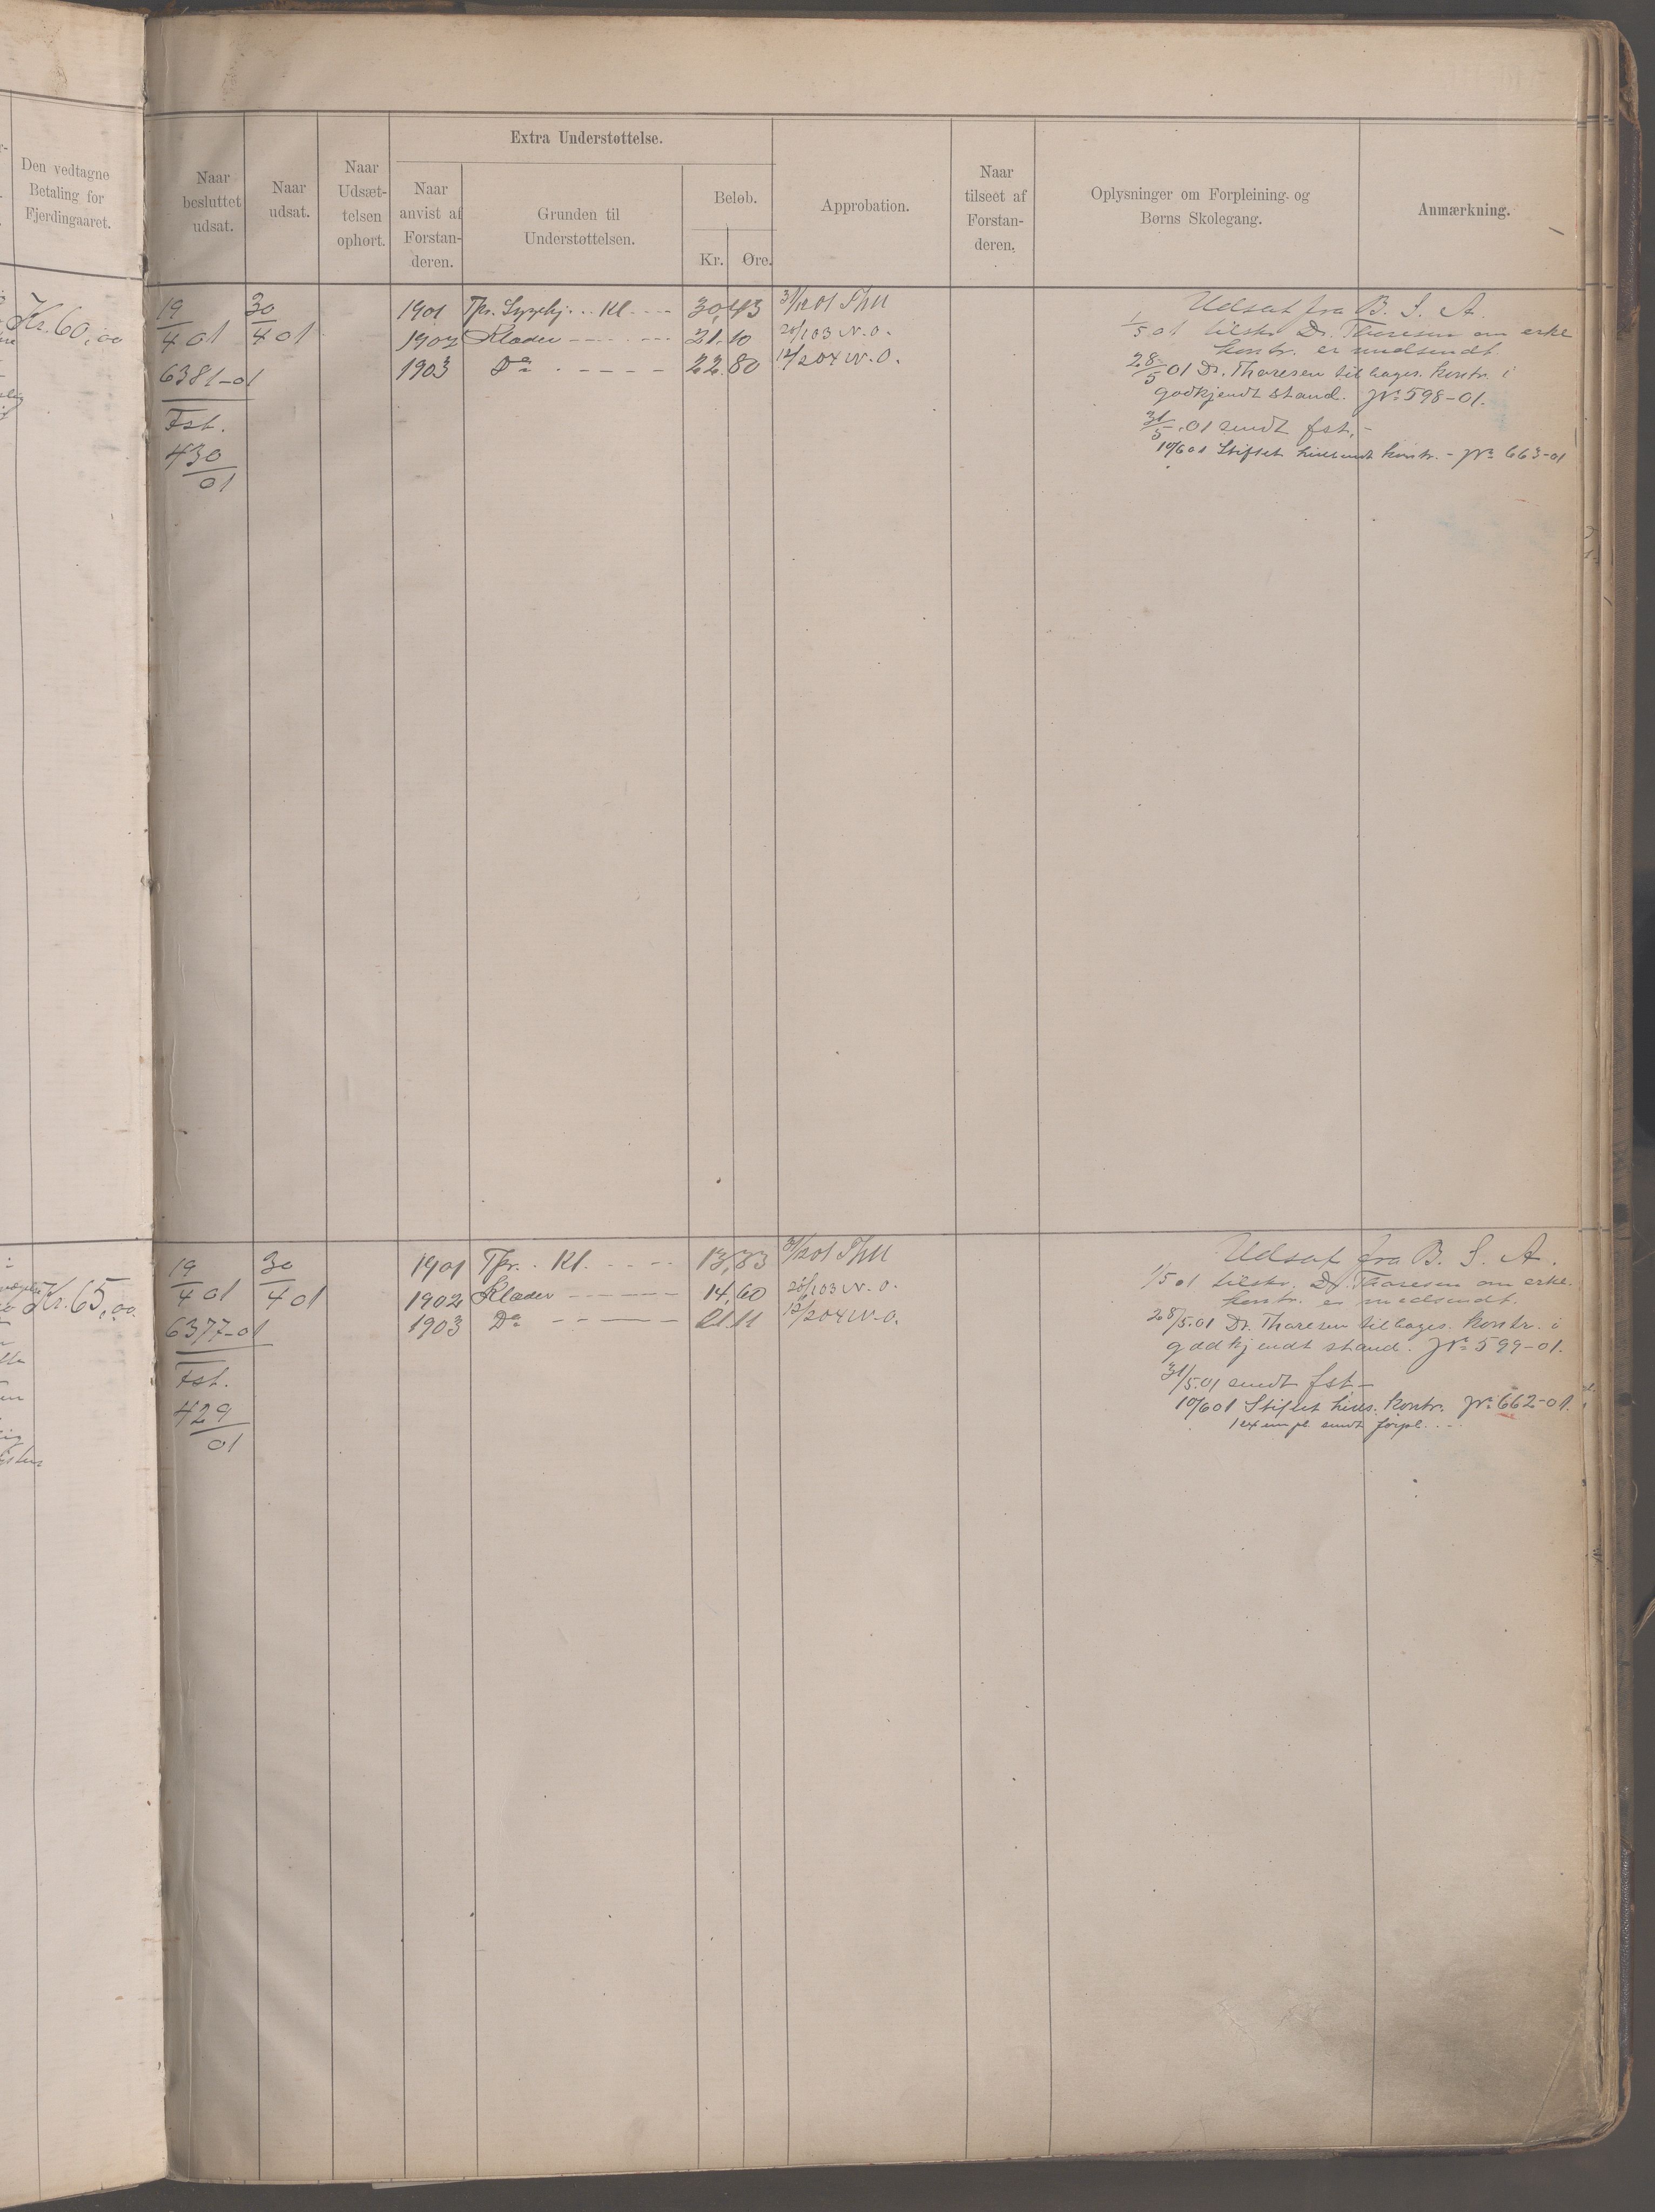 Den vedtagne
Betaling for
Fjerdingaaret.
Naar
besluttet
udsat.
Naar
udsat.
Naar
Udsæt-
telsen
ophørt.
Extra Understøttelse.
Naar
anvist af
Forstan-
deren.
Grunden til
Understøttelsen.
Beløb.
Kr.
Øre.
Approbation.
Naar
tilseet af
Forstan-
deren.
Oplysninger om Forpleining og
Børns Skolegang.
Anmærkning.
Kr. 60,00
19/4 01
30/4 01
6381-01
Fst.
430/01
1901 Tpr. Sygehj... Kl. - - - 30,43 31/12 01
1902 Klæder - - - - - 21.10 20/1 03 N.O.
1903 Do - - - - 22.80 12/2 04 N.O.
Udsat fra B. S. A.
1/5 01 tilskr. Dr. Thoresen om erkl.
kontr. er medsendt.
28/5 01 Dr. Thoresen tilbages. kontr. i
godkjendt stand. No 598-01.
31/5.01 sendt fst. -
10/6 01 Stiftet kontr. - No 663-01
Kr. 65,00
19/4 01
30/4 01
6377-01
Fst.
429/01
1901 Tpr. . Kl. - - - - 13,83 31/12 01
1902 Klæder - - - - - 14,60 20/1 03 N.O.
1903 Do - - - - - 21.11 12/2 04 N.O.
Udsat fra B. S. A.
1/5 01 tilskr. Dr. Thoresen om erkl.
kontr. er medsendt.
28/5.01 Dr. Thoresen tilbages. kontr. i
godkjendt stand. No 599-01.
31/5.01 sendt fst. -
10/6 01 Stiftet kontr. No 662-01.
1 exempl. sendt forpl. . -